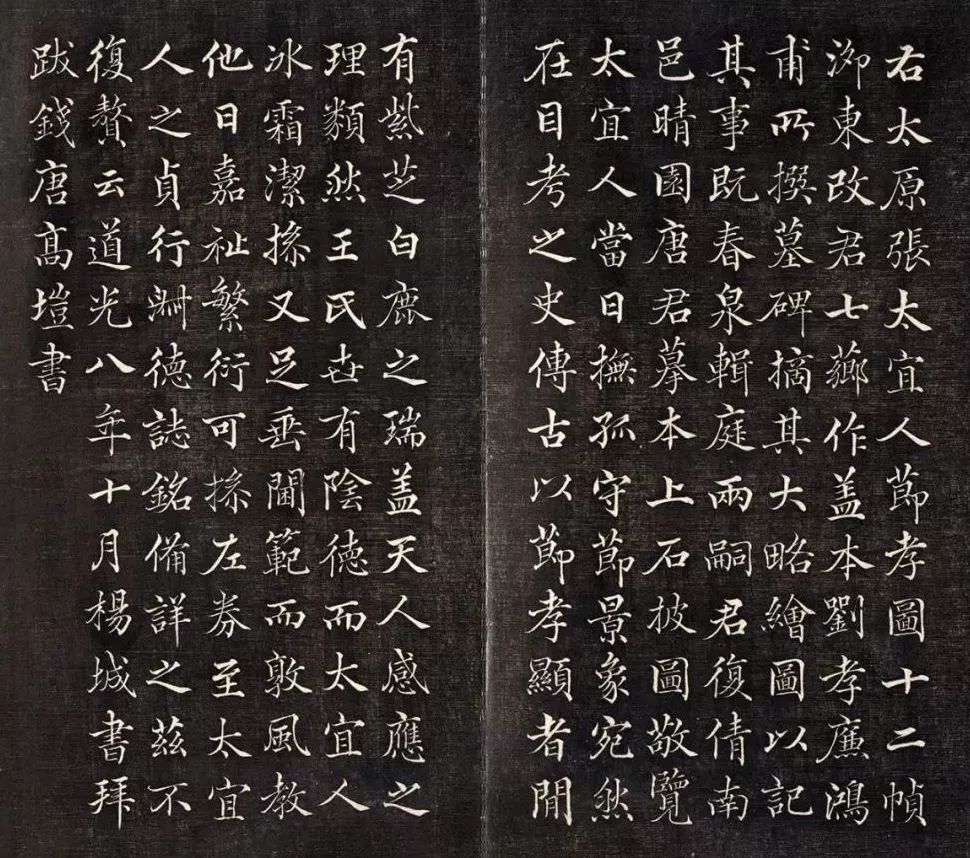 右太原張太宜人莭孝圖十二幀
泖東改君七薌作蓋本劉孝廉鴻
甫所撰墓碑摘其大略繪圖以記
其事既春泉輯庭兩嗣君復倩南
邑晴園唐君摹本上石披圖敬覽
太宜人當日撫孤守莭景象宛然
在目考之史傳古以莭孝顯者閒
有紫芝白鹿之瑞蓋天人感應之
理類然王氏世有陰德而太宜人
冰霜潔操又足垂閫範而敦風教
他日嘉祉繁衍可操左券至太宜
人之貞行淵德誌銘備詳之茲不
復贅云道光八年十月楊城書拜
跋錢唐高塏書